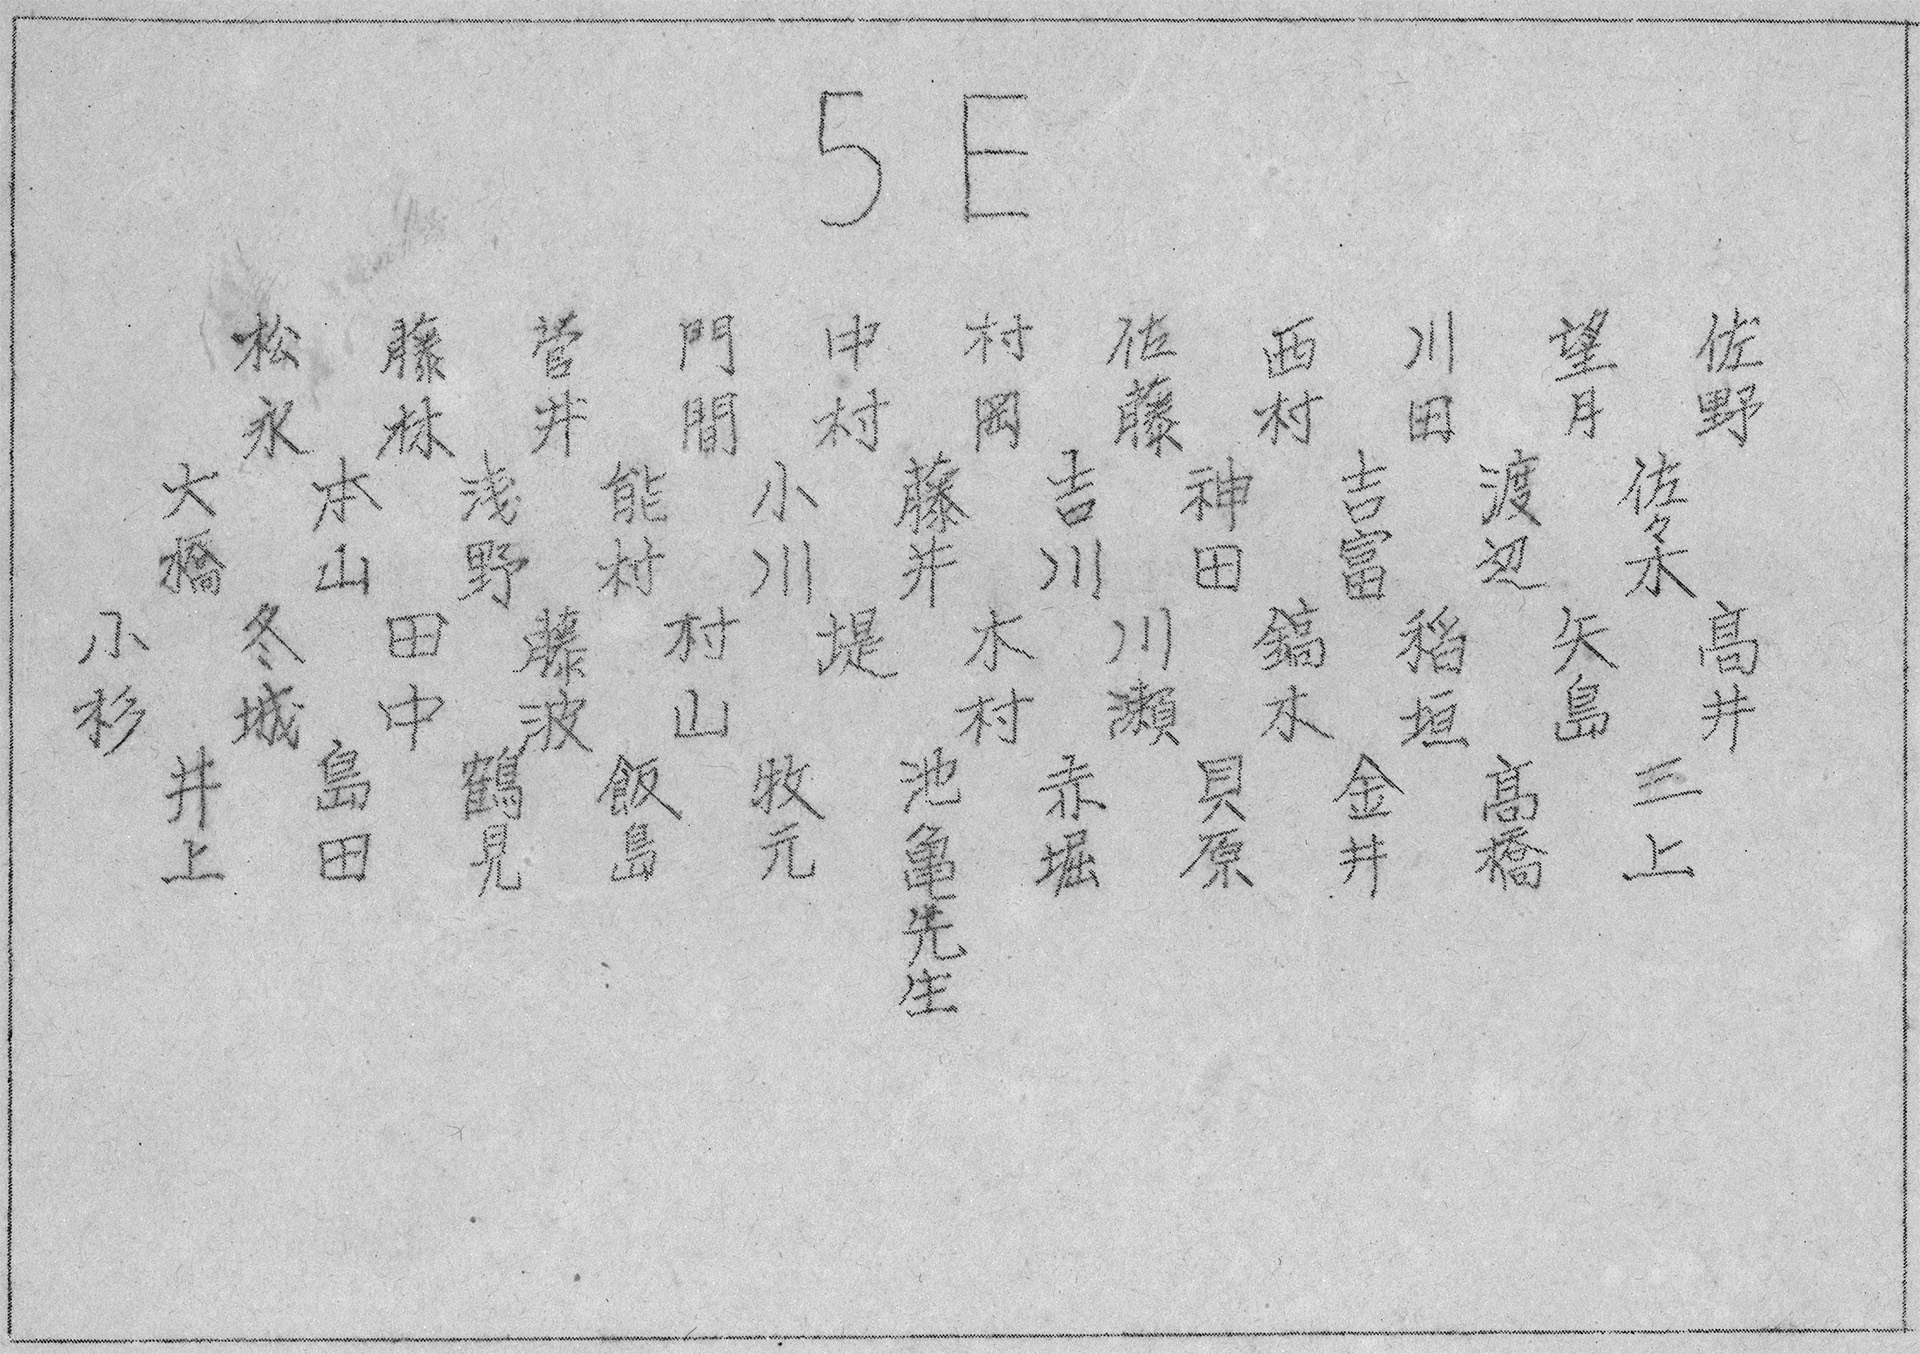 5E
松永 藤林 菅井 門間 中村 村岡 佐藤 西村 川田 望月 佐野
大橋 本山 浅野 能村 小川 藤井 吉川 神田 吉富 渡辺 佐々木
小杉 冬城 田中 藤波 村山 堤 木村 川瀬 鏑木 稲垣 矢島 高井
井上 島田 鶴見 飯島 牧元 池亀先生 赤堀 貝原 金井 高橋 三上